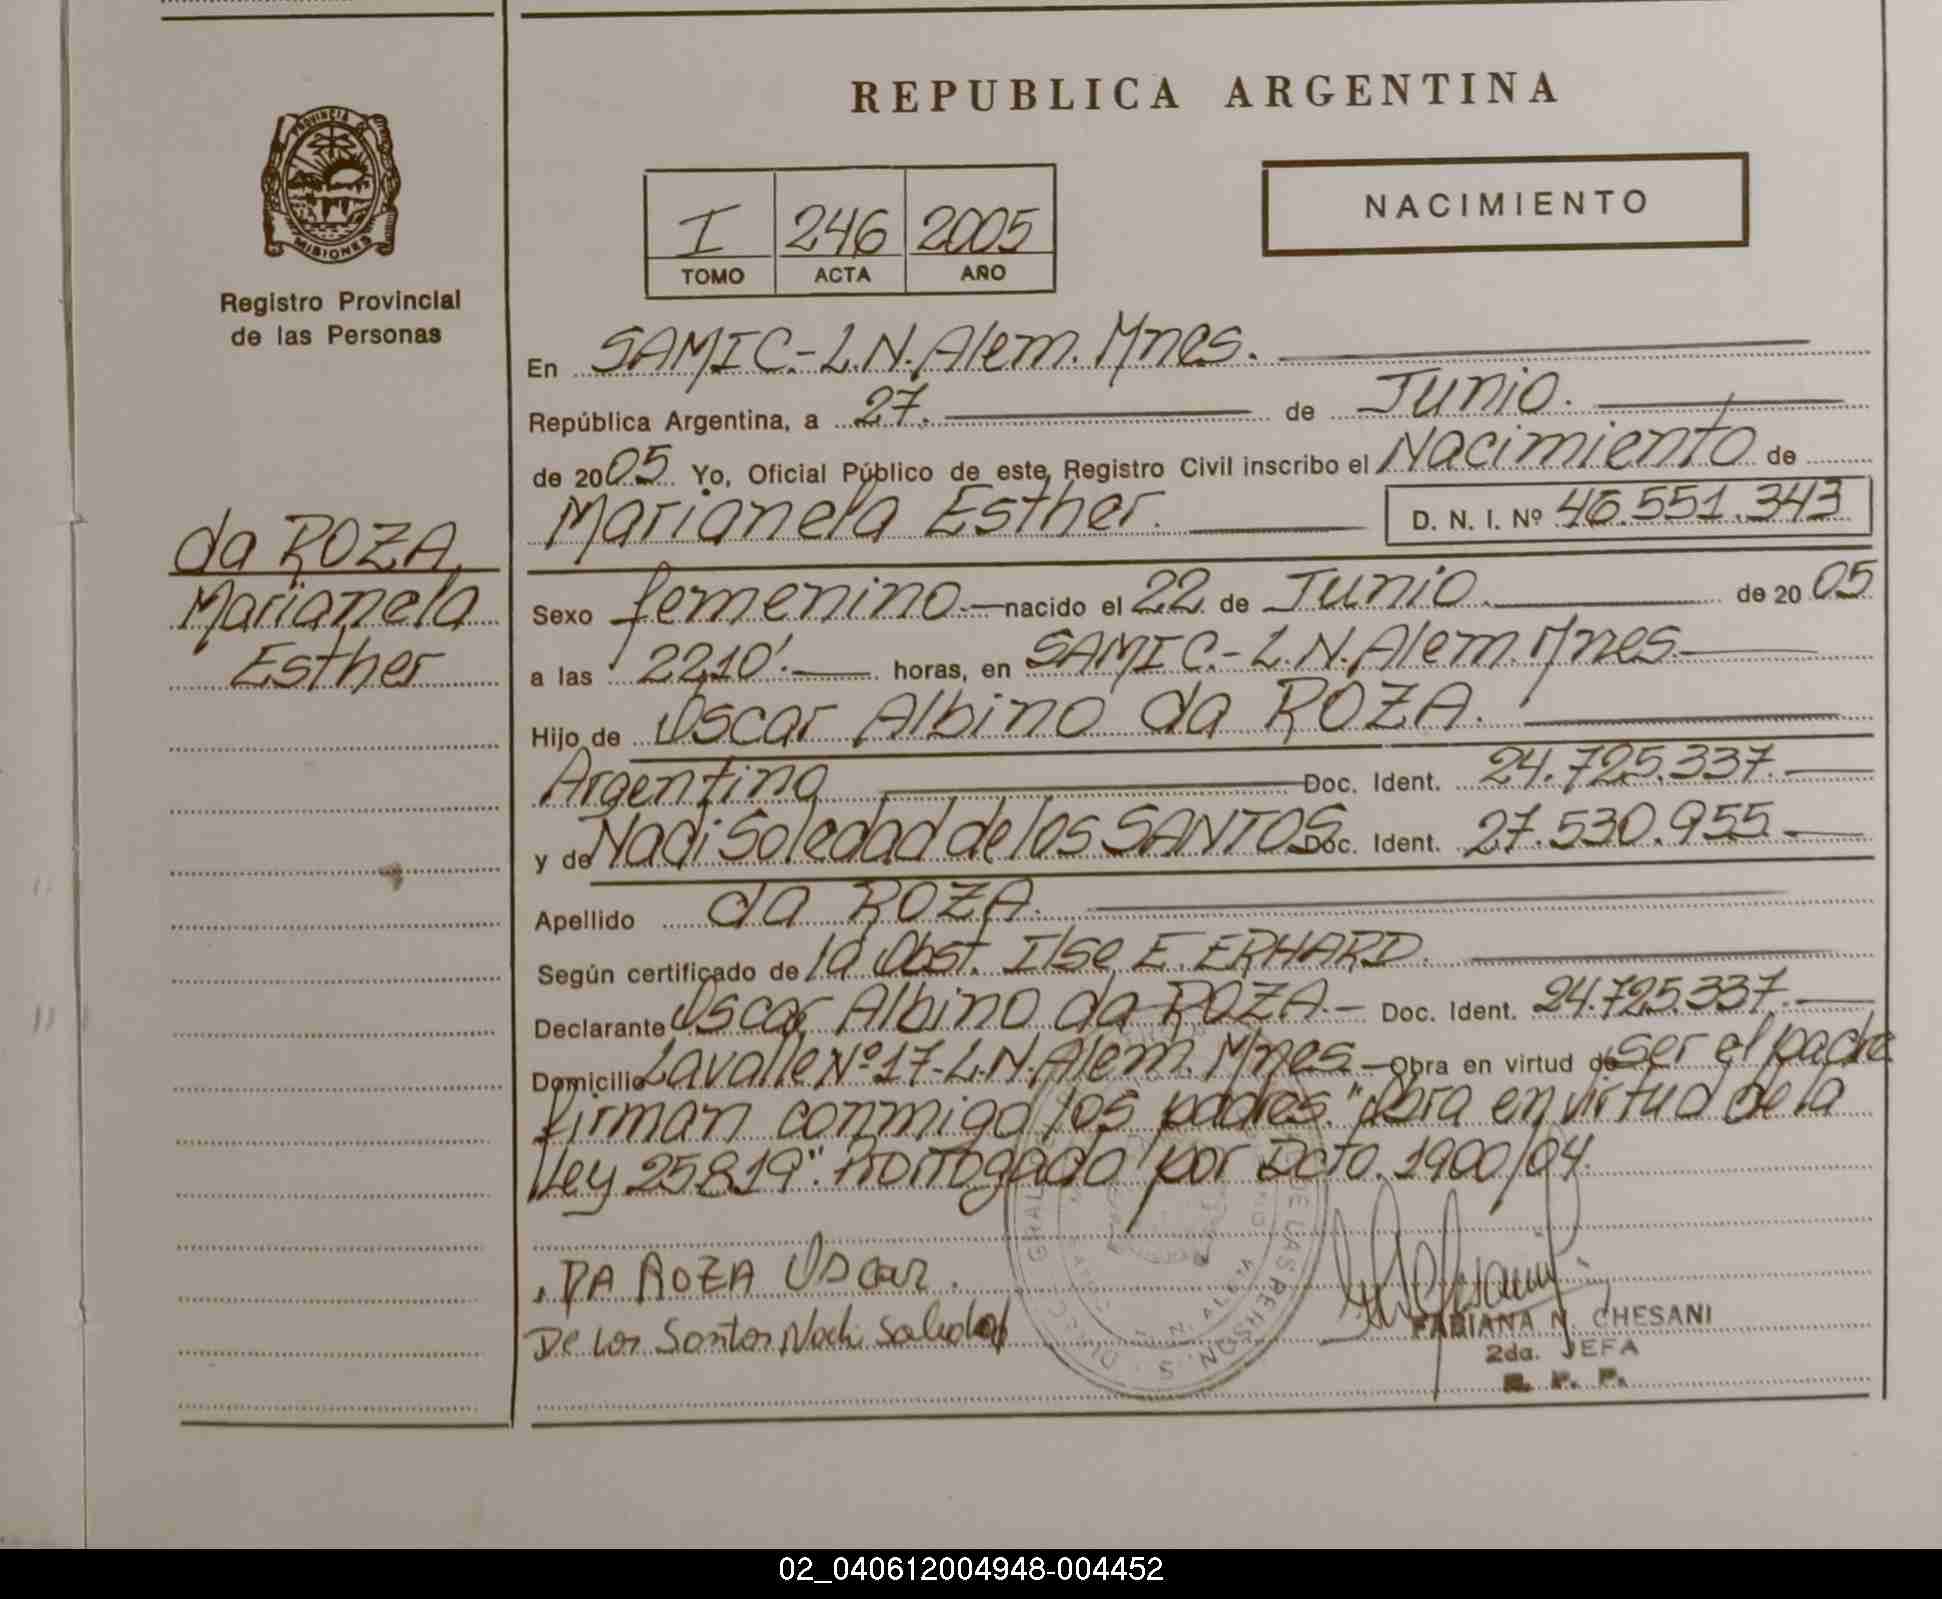 REPUBLICA ARGENTINA
PROVINCIA DE
MISIONES
Registro Provincial
de las Personas
NACIMIENTO
I 246 2005
TOMO ACTA AÑO
En SAMIC.- L.N. Alem. Mnes.
República Argentina, a 27. de Junio.
de 2005. Yo, Oficial Público de este Registro Civil inscribo el Nacimiento de
Marianela Esther. D. N. I. Nº 46.551.343
da ROZA
Marianela
Esther
Sexo femenino.- nacido el 22 de Junio. de 2005
a las 22,10'. horas, en SAMIC.- L.N. Alem. Mnes.
Hijo de Oscar Albino da ROZA.
Argentina Doc. Ident. 24.725.337.
y de Nadi Soledad de los SANTOS Doc. Ident. 27.530.955
Apellido da ROZA.
Según certificado de la Obst. Ilse E. ERHARD.
Declarante Oscar Albino da ROZA.- Doc. Ident. 24.725.337.
Domicilio Lavalle Nº 17- L.N. Alem. Mnes.- Obra en virtud de ser el padre
firman conmigo los padres. "Obra en virtud de la
Ley 25819". Prorrogado por Dcto. 1900/04.
DA ROZA Oscar.
De Los Santos Nadi Soledad
FABIANA N. CHESANI
2da. JEFA
R. P. P.
02_040612004948-004452